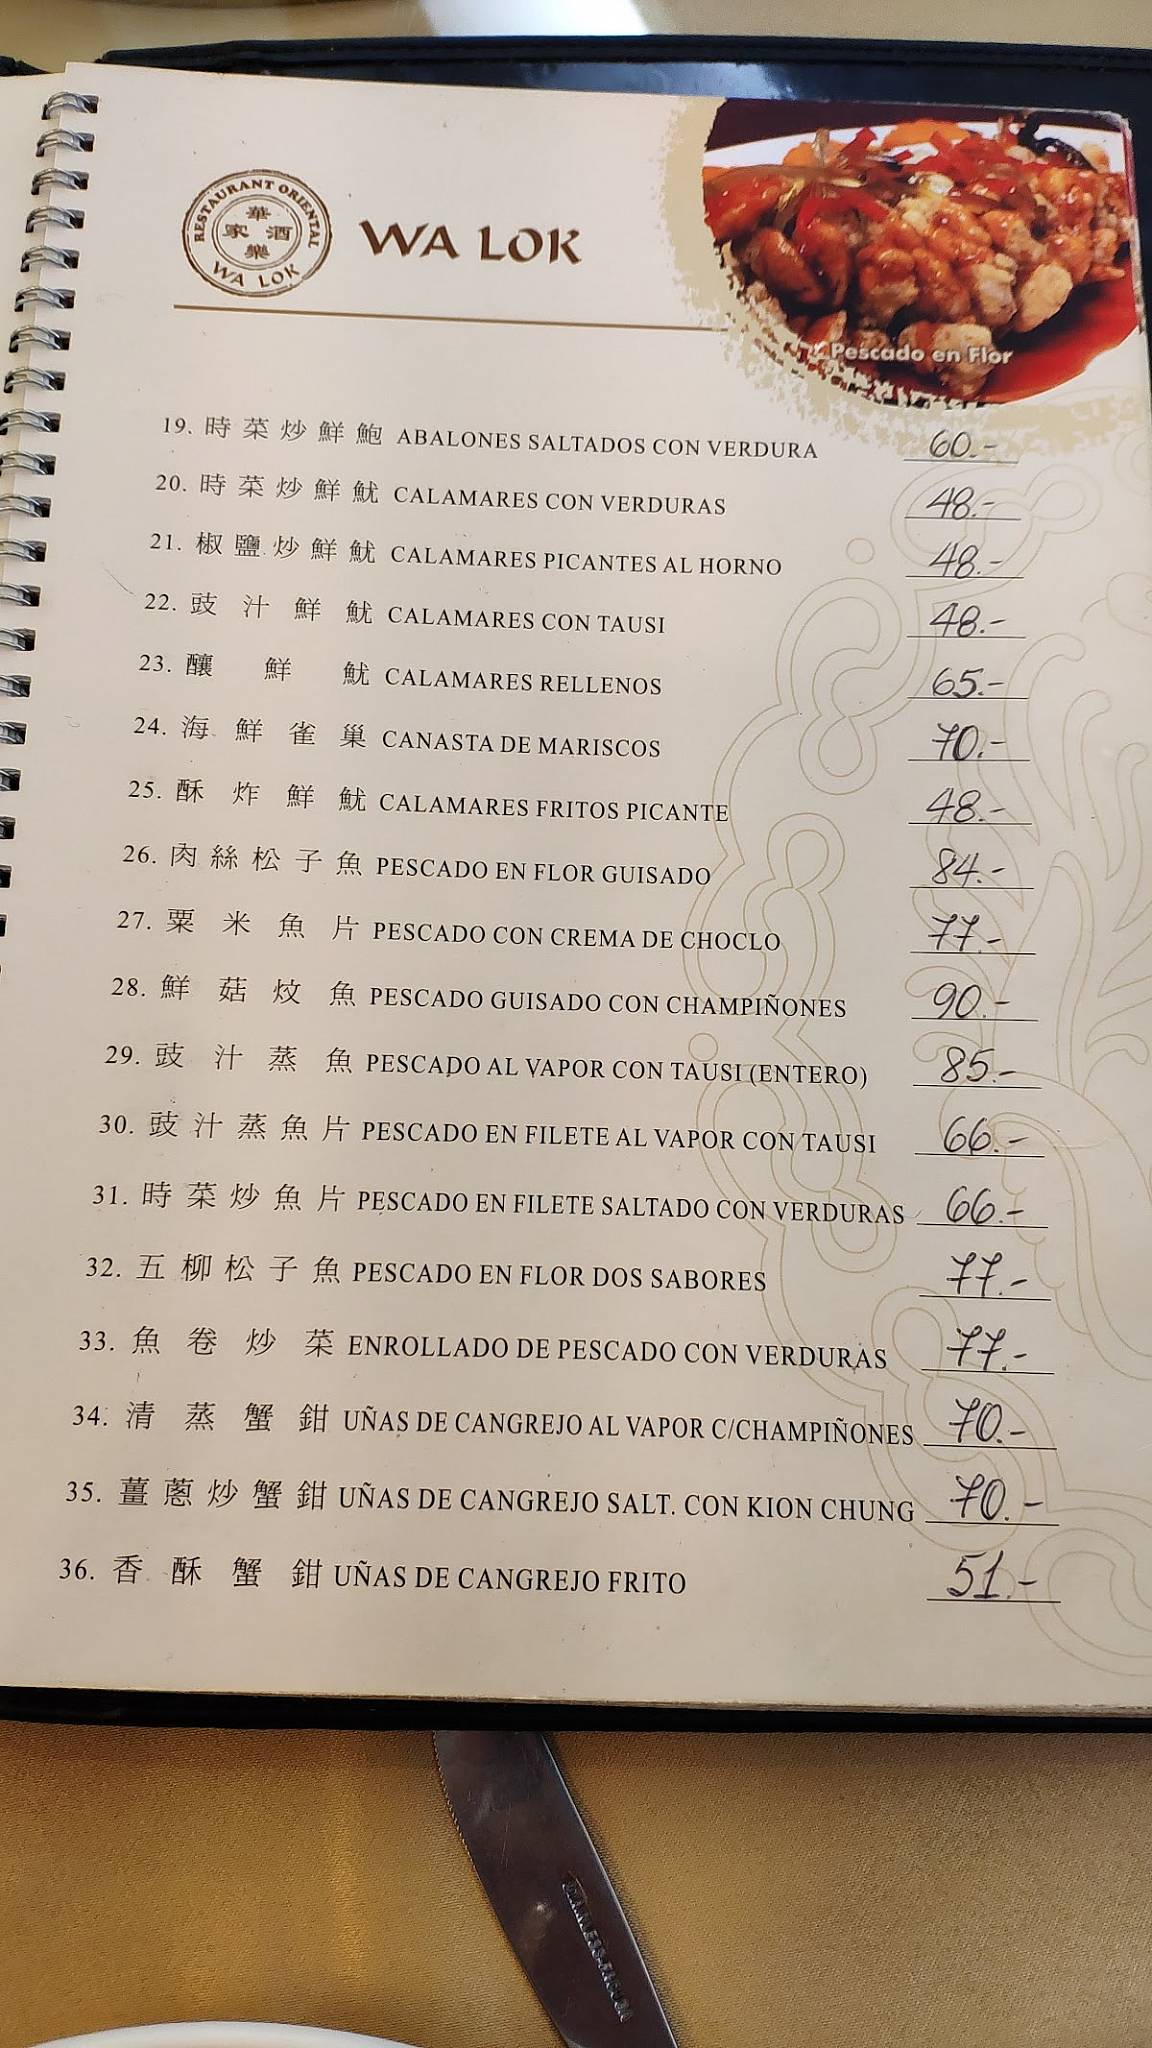 RESTAURANT ORIENTAL
華
家 酒
樂
WA LOK
WA LOK
Pescado en Flor
19. 時菜炒鮮鮑 ABALONES SALTADOS CON VERDURA 60.-
20. 時菜炒鮮魷 CALAMARES CON VERDURAS 48.-
21. 椒鹽炒鮮魷 CALAMARES PICANTES AL HORNO 48.-
22. 豉汁鮮魷 CALAMARES CON TAUSI 48.-
23. 釀鮮魷 CALAMARES RELLENOS 65.-
24. 海鮮雀巢 CANASTA DE MARISCOS 70.-
25. 酥炸鮮魷 CALAMARES FRITOS PICANTE 48.-
26. 肉絲松子魚 PESCADO EN FLOR GUISADO 84.-
27. 粟米魚片 PESCADO CON CREMA DE CHOCLO 77.-
28. 鮮菇炆魚 PESCADO GUISADO CON CHAMPIÑONES 90.-
29. 豉汁蒸魚 PESCADO AL VAPOR CON TAUSI (ENTERO) 85.-
30. 豉汁蒸魚片 PESCADO EN FILETE AL VAPOR CON TAUSI 66.-
31. 時菜炒魚片 PESCADO EN FILETE SALTADO CON VERDURAS 66.-
32. 五柳松子魚 PESCADO EN FLOR DOS SABORES 77.-
33. 魚卷炒菜 ENROLLADO DE PESCADO CON VERDURAS 77.-
34. 清蒸蟹鉗 UÑAS DE CANGREJO AL VAPOR C/CHAMPIÑONES 70.-
35. 薑蔥炒蟹鉗 UÑAS DE CANGREJO SALT. CON KION CHUNG 70.-
36. 香酥蟹鉗 UÑAS DE CANGREJO FRITO 51.-